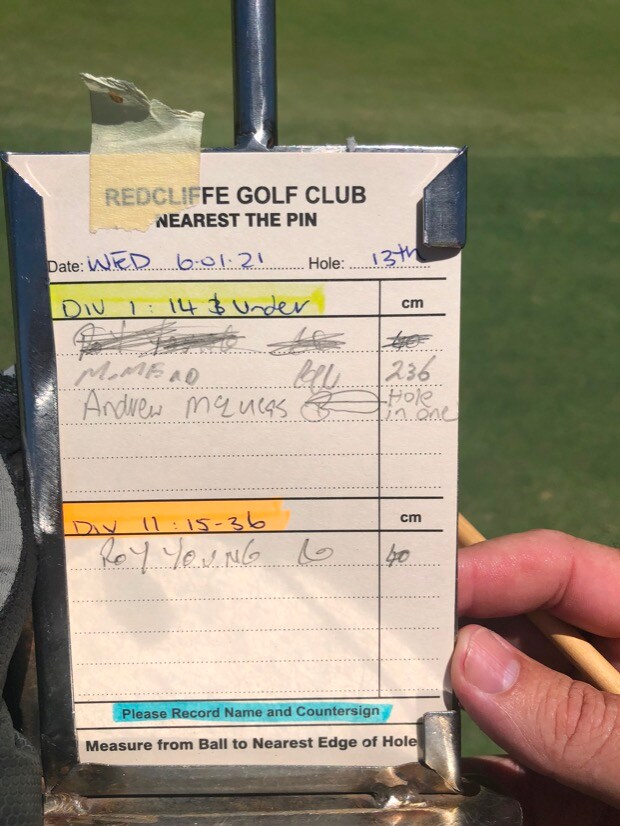 REDCLIFFE GOLF CLUB
NEAREST THE PIN
Date: WED 6.01.21 Hole: 13th
DIV 1: 14 & Under cm
236
Andrew Hole in one
DIV 11: 15-36 cm
ROY YOUNG 40
Please Record Name and Countersign
Measure from Ball to Nearest Edge of Hole